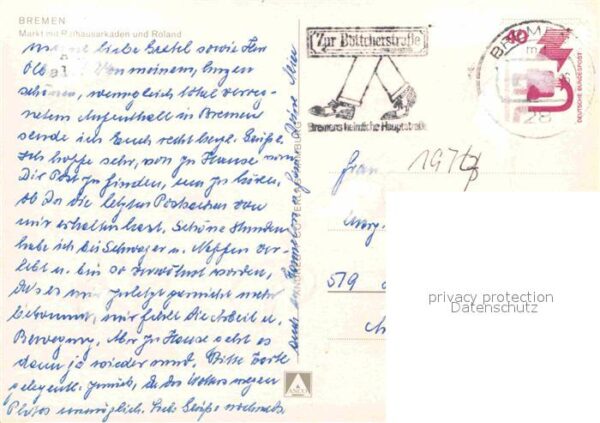 BREMEN
Markt mit Rathausarkaden und Roland
meine liebe Gretel sowie Herr
Von meinem, kurzen
schönen, wenngleich total verreg-
netem Aufenthalt in Bremen
sende ich Euch recht herzl. Grüße.
Ich hoffe sehr, von zu Hause
Die Post zu finden, um zu hören,
ob Du die letzten Postkarten von
mir erhalten hast. Schöne Stunden
habe ich bei Schwager u. Neffen ver-
lebt u. bin so verwöhnt worden,
daß es mir zuletzt garnicht mehr
bekommt, mir fehlt die Arbeit u.
Bewegung. Aber zu Hause geht es
dann ja wieder rund. Bitte Karte
gelegentl. zurück, da des Wetters wegen
Photos unmöglich. Herzl. Grüße nochmals
auch an
Zur Böttcherstraße
Bremens heimliche Hauptstraße
BREMEN
28
40
DEUTSCHE BUNDESPOST
1974
Frau
519
privacy protection
Datenschutz